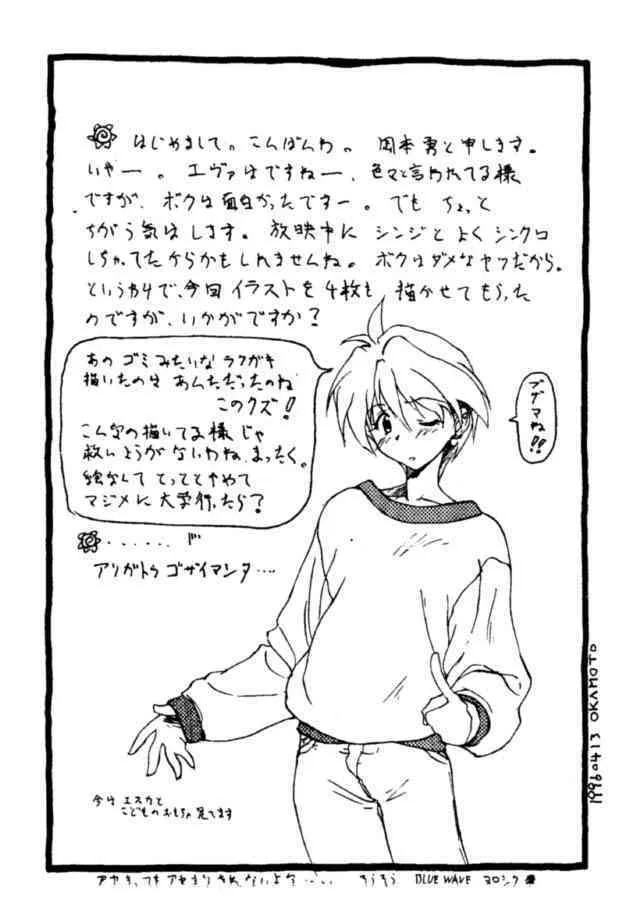 はじめまして。こんばんわ。岡本勇と申します。
いやー。エヴァはですねー、色々と言われてる様
ですが、ボクは面白かったですー。でもちょっと
ちがう気はします。放映中にシンジとよくシンクロ
しちゃてたからかもしれませんね。ボクはダメなヤツだから。
というわけで、今回イラストを4枚も描かせてもらった
のですが、いかがですか?
あのゴミみたいなラクガキ
描いたのはあんただったのね
このクズ!
こんなの描いてる様じゃ
救いようがないわね、まったく。
絵なんてとっととやめて
マジメに大学行ったら?
ブザマね!!
......
アリガトウゴザイマシタ....
今はエスカと
こどものおもちゃ見てます
19960413 OKAMOTO
そうそう BLUE WAVE ヨロシク